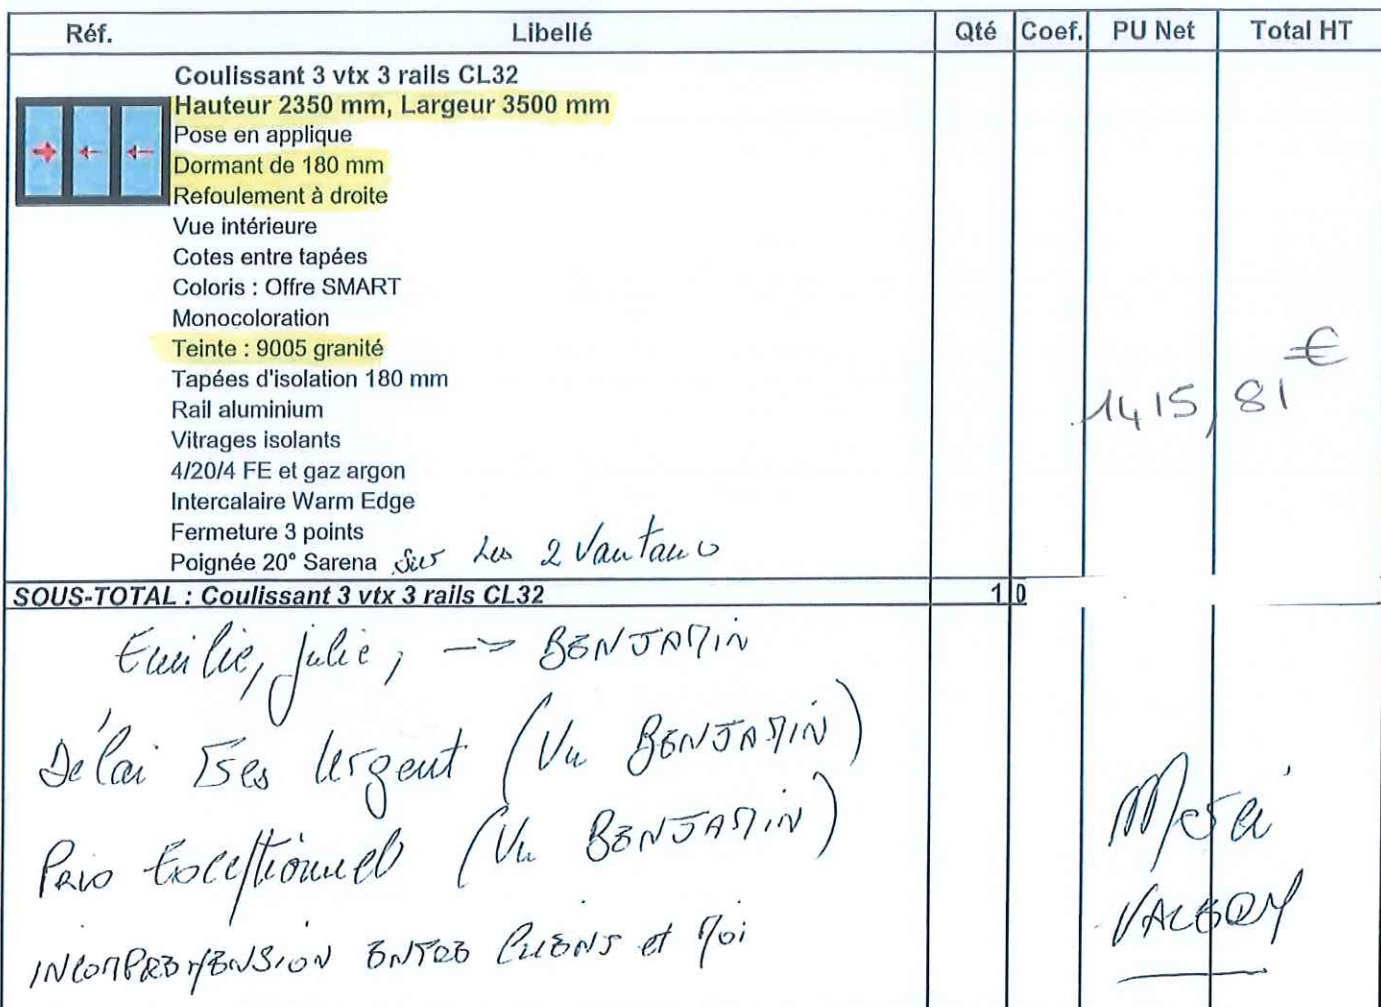 Réf. Libellé Qté Coef. PU Net Total HT
Coulissant 3 vtx 3 rails CL32
Hauteur 2350 mm, Largeur 3500 mm
Pose en applique
Dormant de 180 mm
Refoulement à droite
Vue intérieure
Cotes entre tapées
Coloris : Offre SMART
Monocoloration
Teinte : 9005 granité
Tapées d'isolation 180 mm
Rail aluminium
1415,81 €
Vitrages isolants
4/20/4 FE et gaz argon
Intercalaire Warm Edge
Fermeture 3 points
Poignée 20° Sarena sur les 2 Vantaux
SOUS-TOTAL : Coulissant 3 vtx 3 rails CL32 1 0
Emilie, julie, -> BENJAMIN
Délai Très Urgent (Vu BENJAMIN)
Prix Exceptionnel (Vu BENJAMIN)
Merci
VALERY
INCOMPREHENSION ENTRE CLIENT et Moi